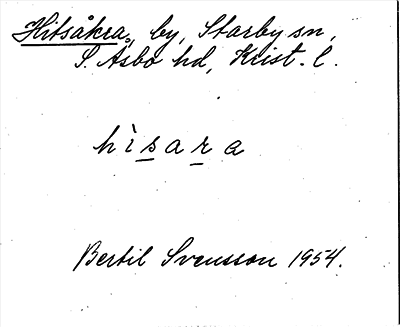 Hitsåkra, by, Starby sn,
S. Åsbo hd, Krist. l.
hìsara
Bertil Svensson 1954.